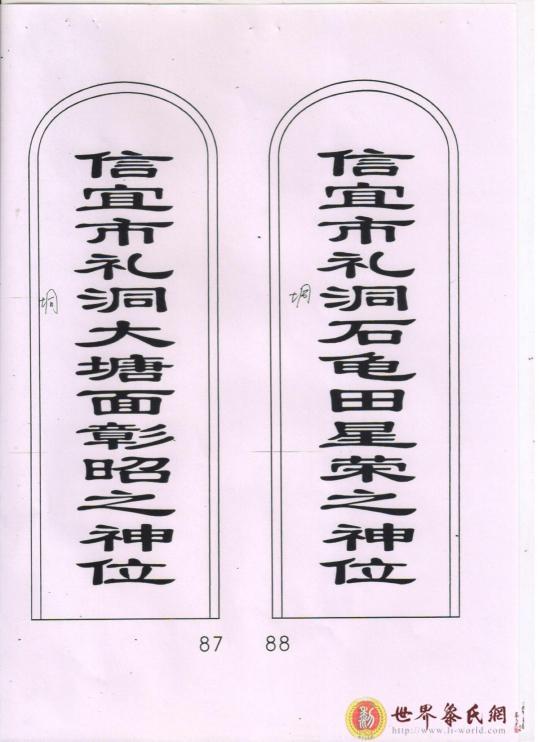 信宜市礼洞大塘面彰昭之神位
垌
87
信宜市礼洞石龟田星荣之神位
垌
88
世界黎氏網
http://www.li-world.com